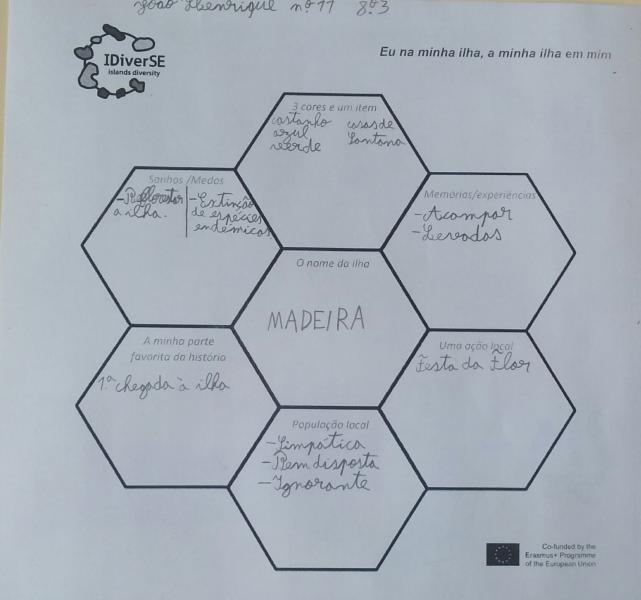 João Henrique nº 11 8º3
IDiverSE
islands diversity
Eu na minha ilha, a minha ilha em mim
3 cores e um item
castanho
azul
verde
casas de
Santana
Sonhos / Medos
- Reflorestar
a ilha.
- Extinção
de espécies
endémicas
Memórias/experiências
- Acampar
- Levadas
O nome da ilha
MADEIRA
A minha parte
favorita da história
1.ª chegada à ilha
Uma ação local
Festa da Flor
População local
- Simpática
- Bem disposta
- Ignorante
Co-funded by the
Erasmus+ Programme
of the European Union